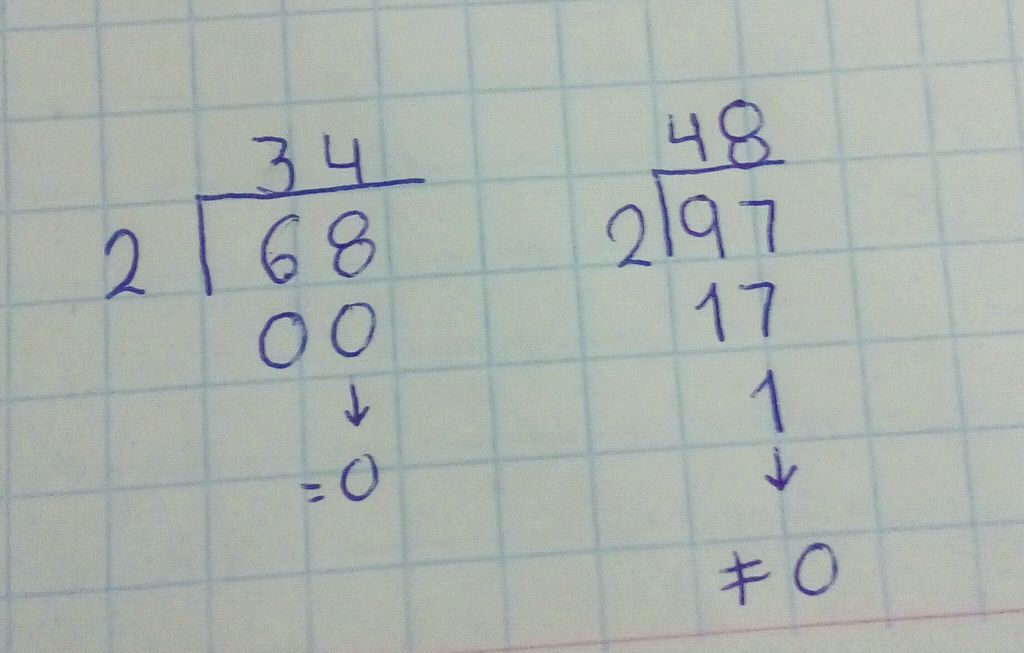 34
2 68
00
↓
=0
48
2 97
17
1
↓
≠ 0